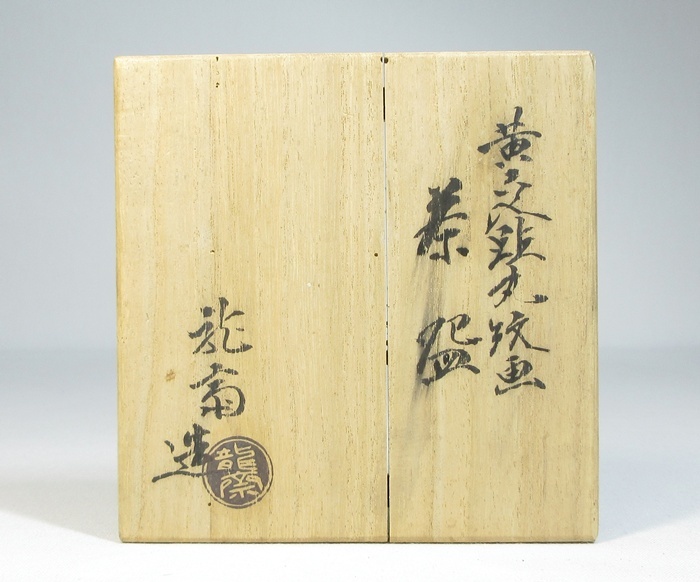 黄交趾丸紋画
茶盌
龍斎造
龍斎